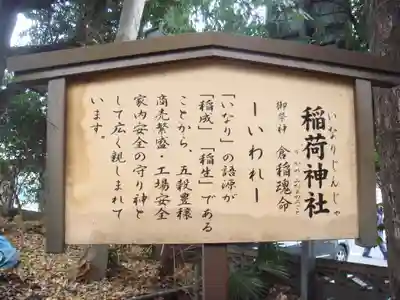 稲荷神社
いなりじんじゃ
御祭神 倉稲魂命
ーいわれー
「いなり」の語源が
「稲成」「稲生」である
ことから、五穀豊穣
商売繁盛・工場安全
家内安全の守り神と
して広く親しまれて
います。